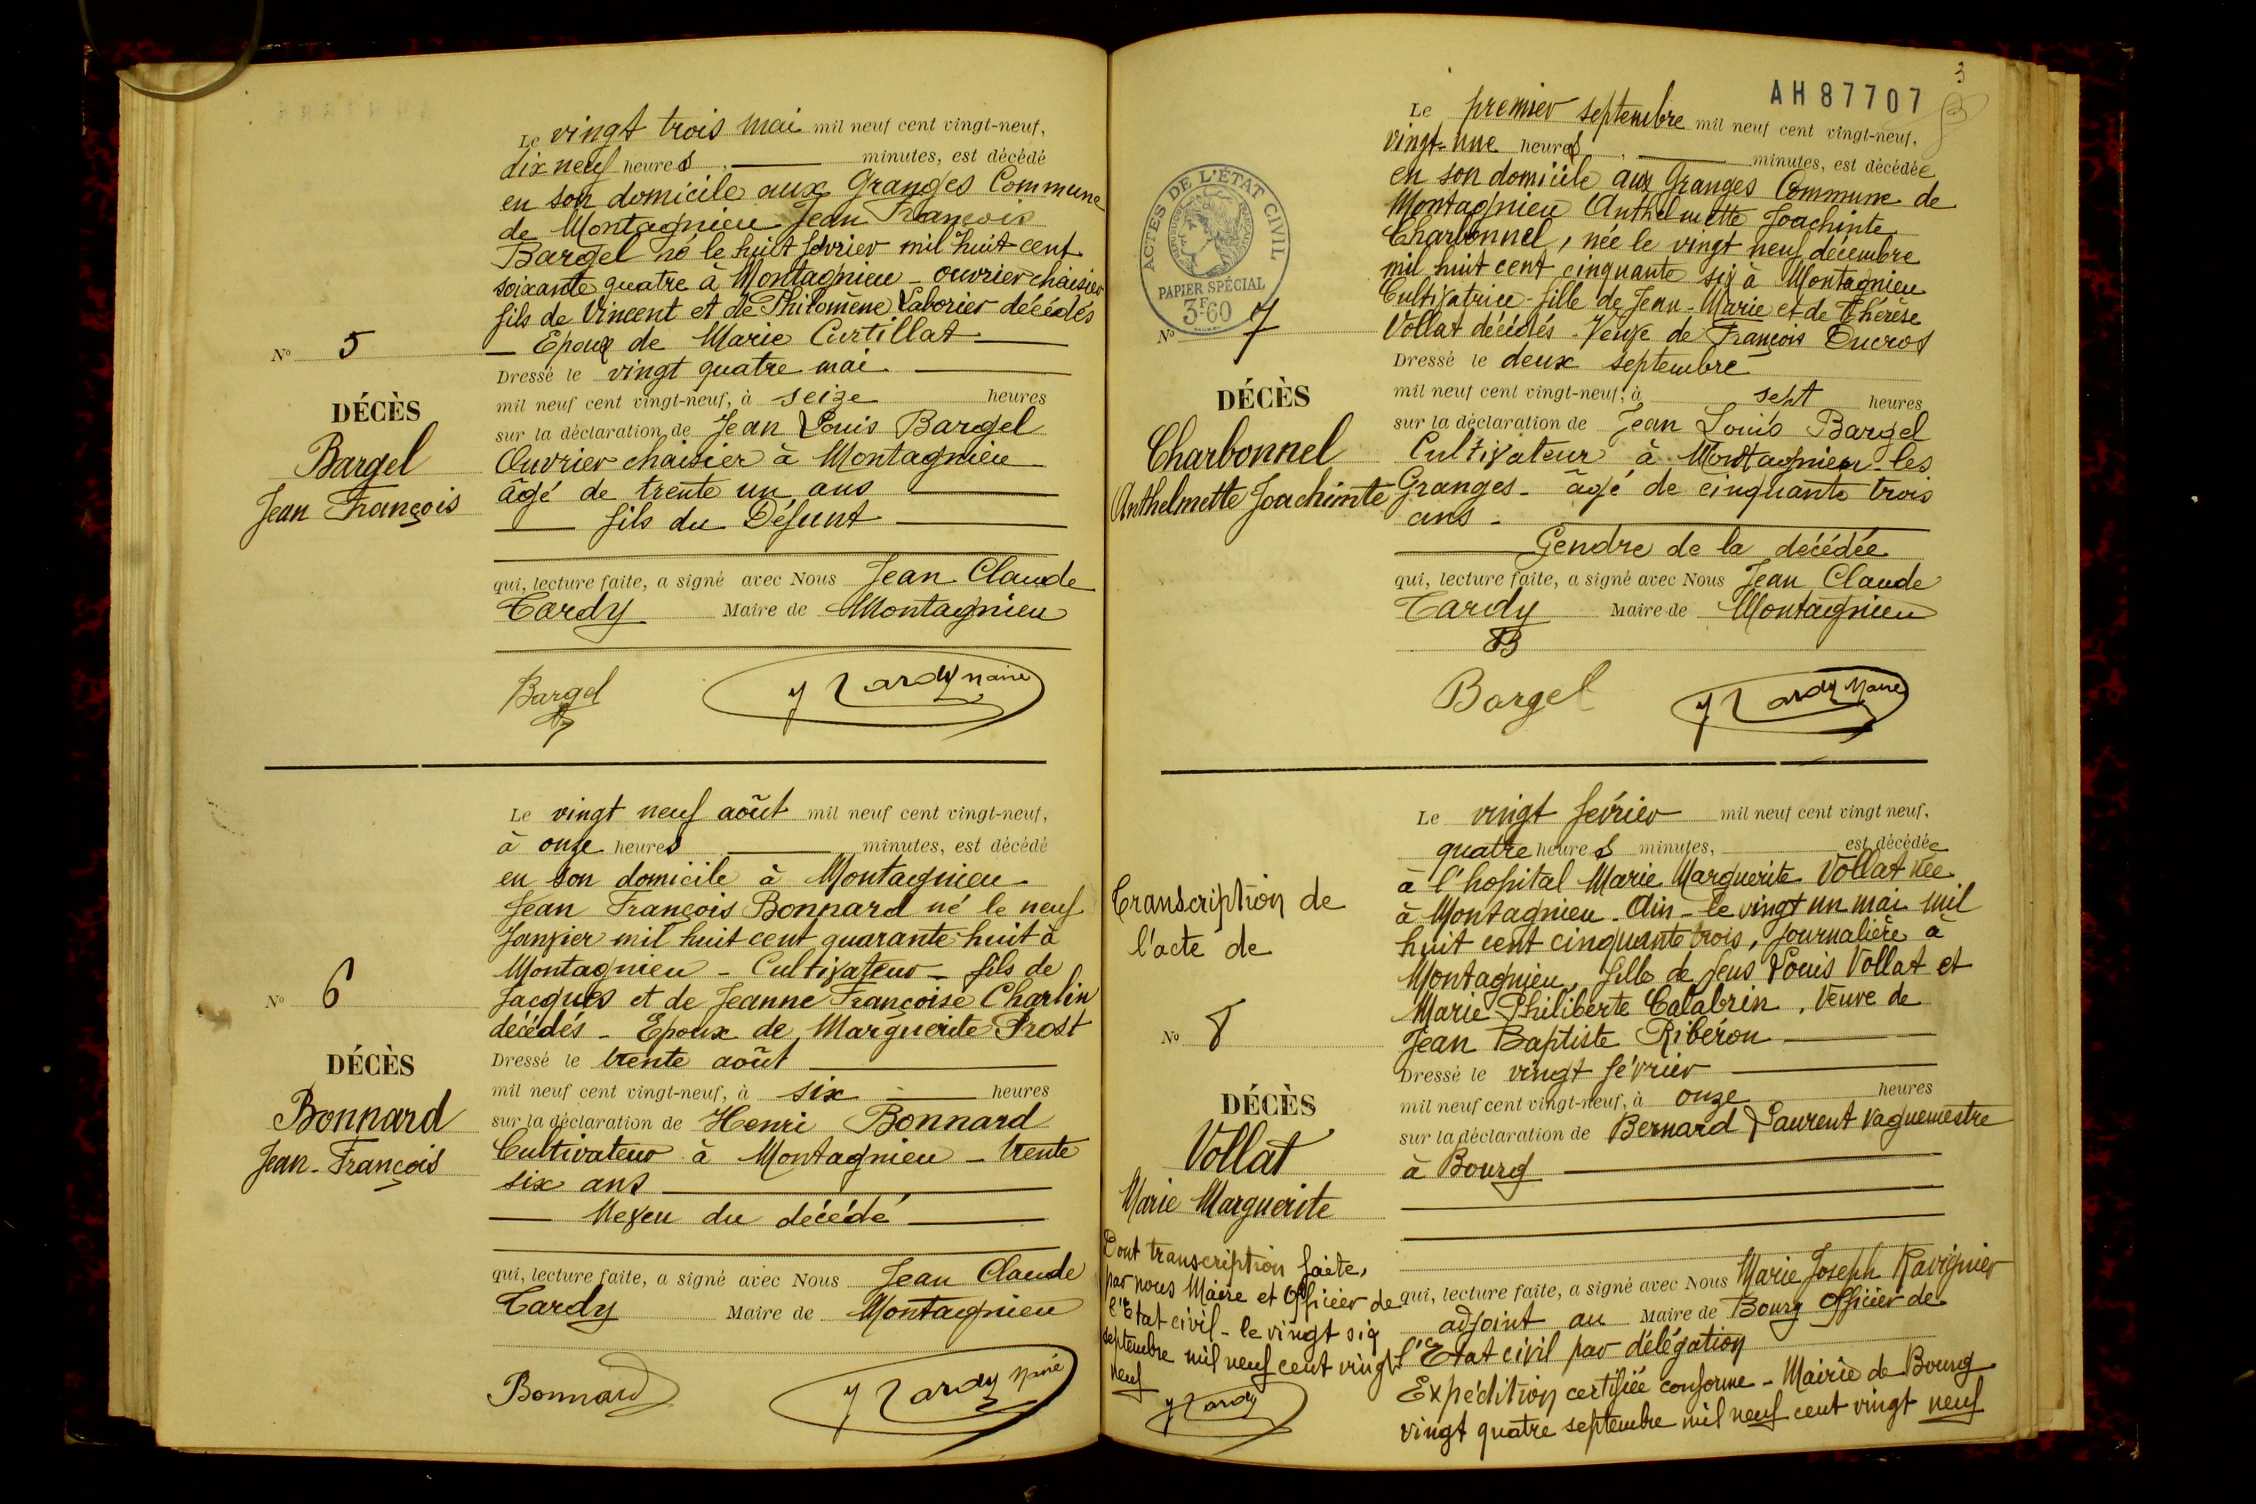 Le vingt trois mai mil neuf cent vingt-neuf,
dix neuf heures, minutes, est décédé
en son domicile aux Granges Commune
de Montagnieu Jean François
Bargel né le huit février mil huit cent
soixante quatre à Montagnieu - ouvrier chaisier
fils de Vincent et de Philomène Laborier décédés
- Epoux de Marie Curtillat
N° 5
Dressé le vingt quatre mai
mil neuf cent vingt-neuf, à seize heures
DÉCÈS
sur la déclaration de Jean Louis Bargel
Bargel
Ouvrier chaisier à Montagnieu
Jean François
âgé de trente un ans
fils du Défunt
qui, lecture faite, a signé avec Nous Jean Claude
Tardy Maire de Montagnieu
Bargel
J Tardy Maire
Le vingt neuf août mil neuf cent vingt-neuf,
à onze heures minutes, est décédé
en son domicile à Montagnieu
Jean François Bonnard né le neuf
Janvier mil huit cent quarante-huit à
Montagnieu - Cultivateur - fils de
N° 6
Jacques et de Jeanne Françoise Charlin
décédés - Epoux de Marguerite Prost
DÉCÈS
Dressé le trente août
mil neuf cent vingt-neuf, à six heures
Bonnard
sur la déclaration de Henri Bonnard
Jean-François
Cultivateur à Montagnieu - trente
six ans
Neveu du décédé
qui, lecture faite, a signé avec Nous Jean Claude
Tardy Maire de Montagnieu
Bonnard
J Tardy Maire
3
AH 87707
Le premier septembre mil neuf cent vingt-neuf,
vingt-une heures, minutes, est décédée
en son domicile aux Granges Commune de
Montagnieu Anthelmette Joachinte
Charbonnel, née le vingt neuf décembre
mil huit cent cinquante six à Montagnieu
Cultivatrice - fille de Jean-Marie et de Thérèse
Vollat décédés - Veuve de François Ducros
ACTES DE L'ÉTAT CIVIL
PAPIER SPÉCIAL
3F60
N° 7
Dressé le deux septembre
mil neuf cent vingt-neuf, à sept heures
DÉCÈS
sur la déclaration de Jean Louis Bargel
Charbonnel
Cultivateur à Montagnieu - les
Anthelmette Joachinte
Granges - âgé de cinquante trois
ans -
Gendre de la décédée
qui, lecture faite, a signé avec Nous Jean Claude
Tardy Maire de Montagnieu
B
Bargel
J Tardy Maire
Le vingt février mil neuf cent vingt neuf,
quatre heures minutes, est décédée
à l'hopital Marie Marguerite Vollat née
Transcription de
l'acte de
à Montagnieu - Ain - le vingt un mai mil
huit cent cinquante trois, journalière à
Montagnieu, fille de feus Louis Vollat et
Marie Philiberte Calabrin, Veuve de
N° 8
Jean Baptiste Ribéron
Dressé le vingt février
mil neuf cent vingt-neuf, à onze heures
DÉCÈS
sur la déclaration de Bernard Laurent vaguemestre
Vollat
à Bourg
Marie Marguerite
Dont transcription faite,
par nous Maire et Officier de
l'Etat civil - le vingt six
septembre mil neuf cent vingt
neuf
J Tardy
qui, lecture faite, a signé avec Nous Marie Joseph Ravignier
adjoint au Maire de Bourg Officier de
l'Etat civil par délégation
Expédition certifiée conforme - Mairie de Bourg
vingt quatre septembre mil neuf cent vingt neuf